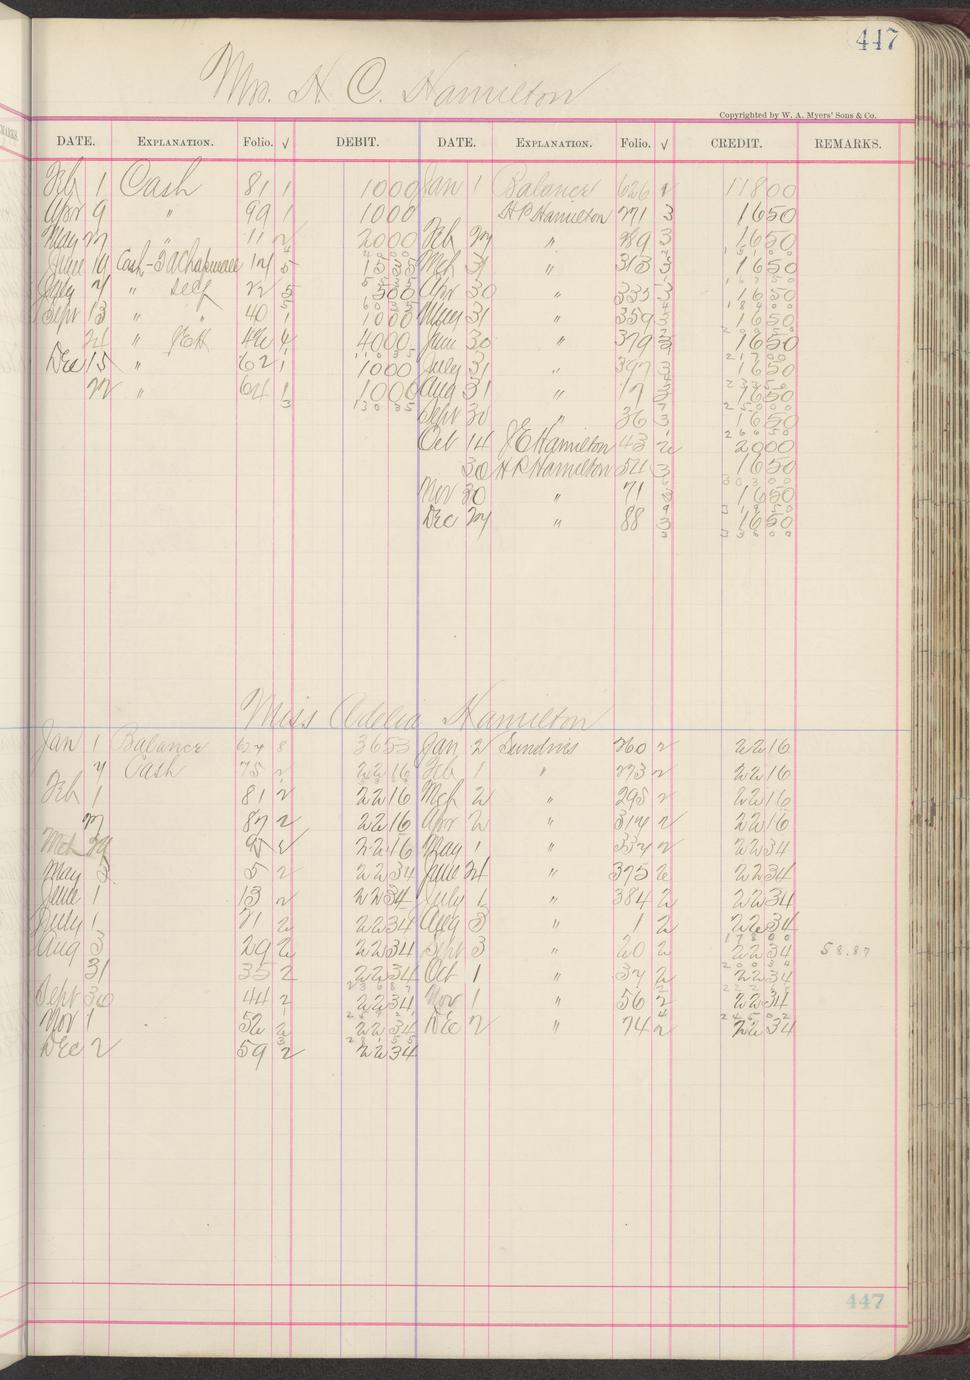 447
Mrs. H. C. Hamilton
Copyrighted by W. A. Myers' Sons & Co.
DATE. EXPLANATION. Folio. √ DEBIT. DATE. EXPLANATION. Folio. √ CREDIT. REMARKS.
Feb 1 Cash 81 1 1000 Jan 1 Balance 626 11800
Apr 9 " 99 1 1000 H P Hamilton 271 3 1650
May 27 " 11 2 2000 Feb 27 " 289 3 1650
June 19 Cash 14 5 1535 Mch 31 " 313 3 1650
July 7 " Self 22 5 500 Apr 30 " 335 3 1650
Sept 13 " " 40 1 1000 May 31 " 359 3 1650
24 " 4 4000 June 30 " 379 3 1650
Dec 15 " 62 1 1000 July 31 " 397 3 1650
22 " 64 1 1000 Aug 31 " 17 3 1650
130 35 Sept 30 " 36 3 1650
Oct 14 J E Hamilton 43 2 2000
30 H P Hamilton 54 3 1650
Nov 30 " 71 3 1650
Dec 27 " 88 3 1650
33600
Miss Adelia Hamilton
Jan 1 Balance 627 8 3653 Jan 2 Sundries 260 2 2216
7 Cash 75 2 2216 Feb 1 " 273 2 2216
Feb 1 81 2 2216 Mch 2 " 295 2 2216
27 87 2 2216 Apr 2 " 317 2 2216
Mch 2216 May 1 " 337 2 2234
May 5 5 2 2234 June 24 " 375 2 2234
June 1 13 2 2234 July 1 " 384 2 2234
July 1 21 2 2234 Aug 3 " 1 2 2234
Aug 3 29 2 2234 Sept 3 " 20 2 2234 58.87
31 35 2 2234 Oct 1 " 37 2 2234
Sept 30 44 2 2234 Nov 1 " 56 2 2234
Nov 1 52 2 2234 Dec 2 " 74 2 2234
Dec 2 59 2 2234
447